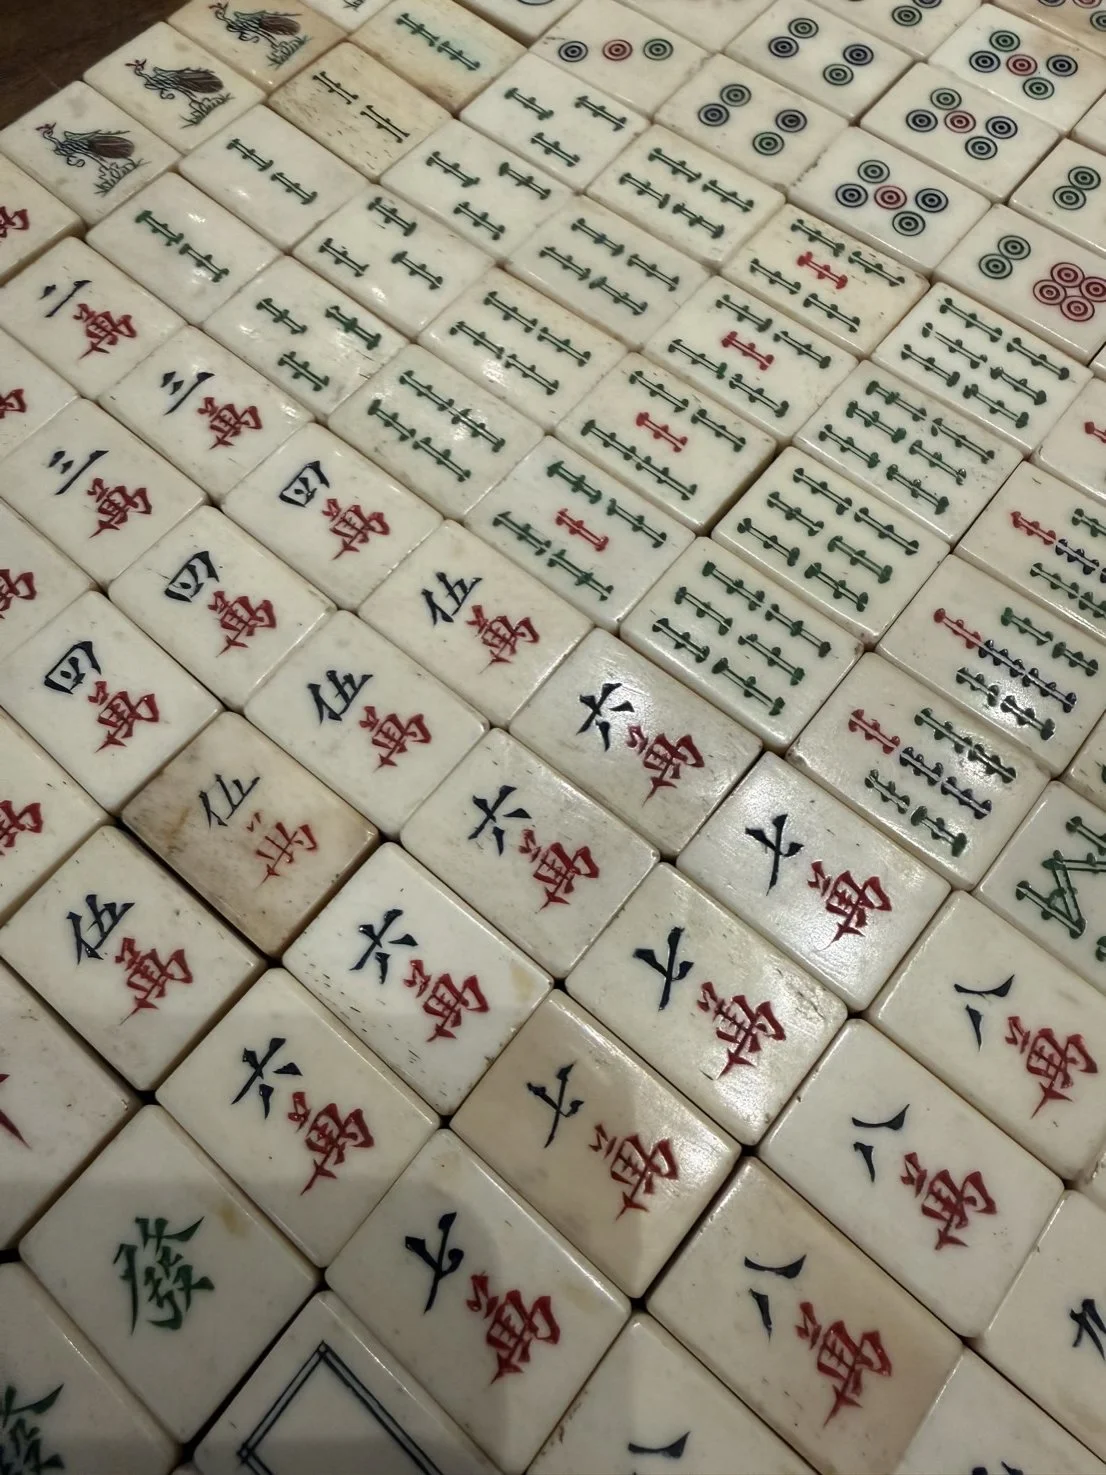 二萬
三萬
三萬
四萬
四萬
四萬
伍萬
伍萬
伍萬
伍萬
六萬
六萬
六萬
六萬
七萬
七萬
七萬
七萬
八萬
八萬
八萬
八
九
發
發